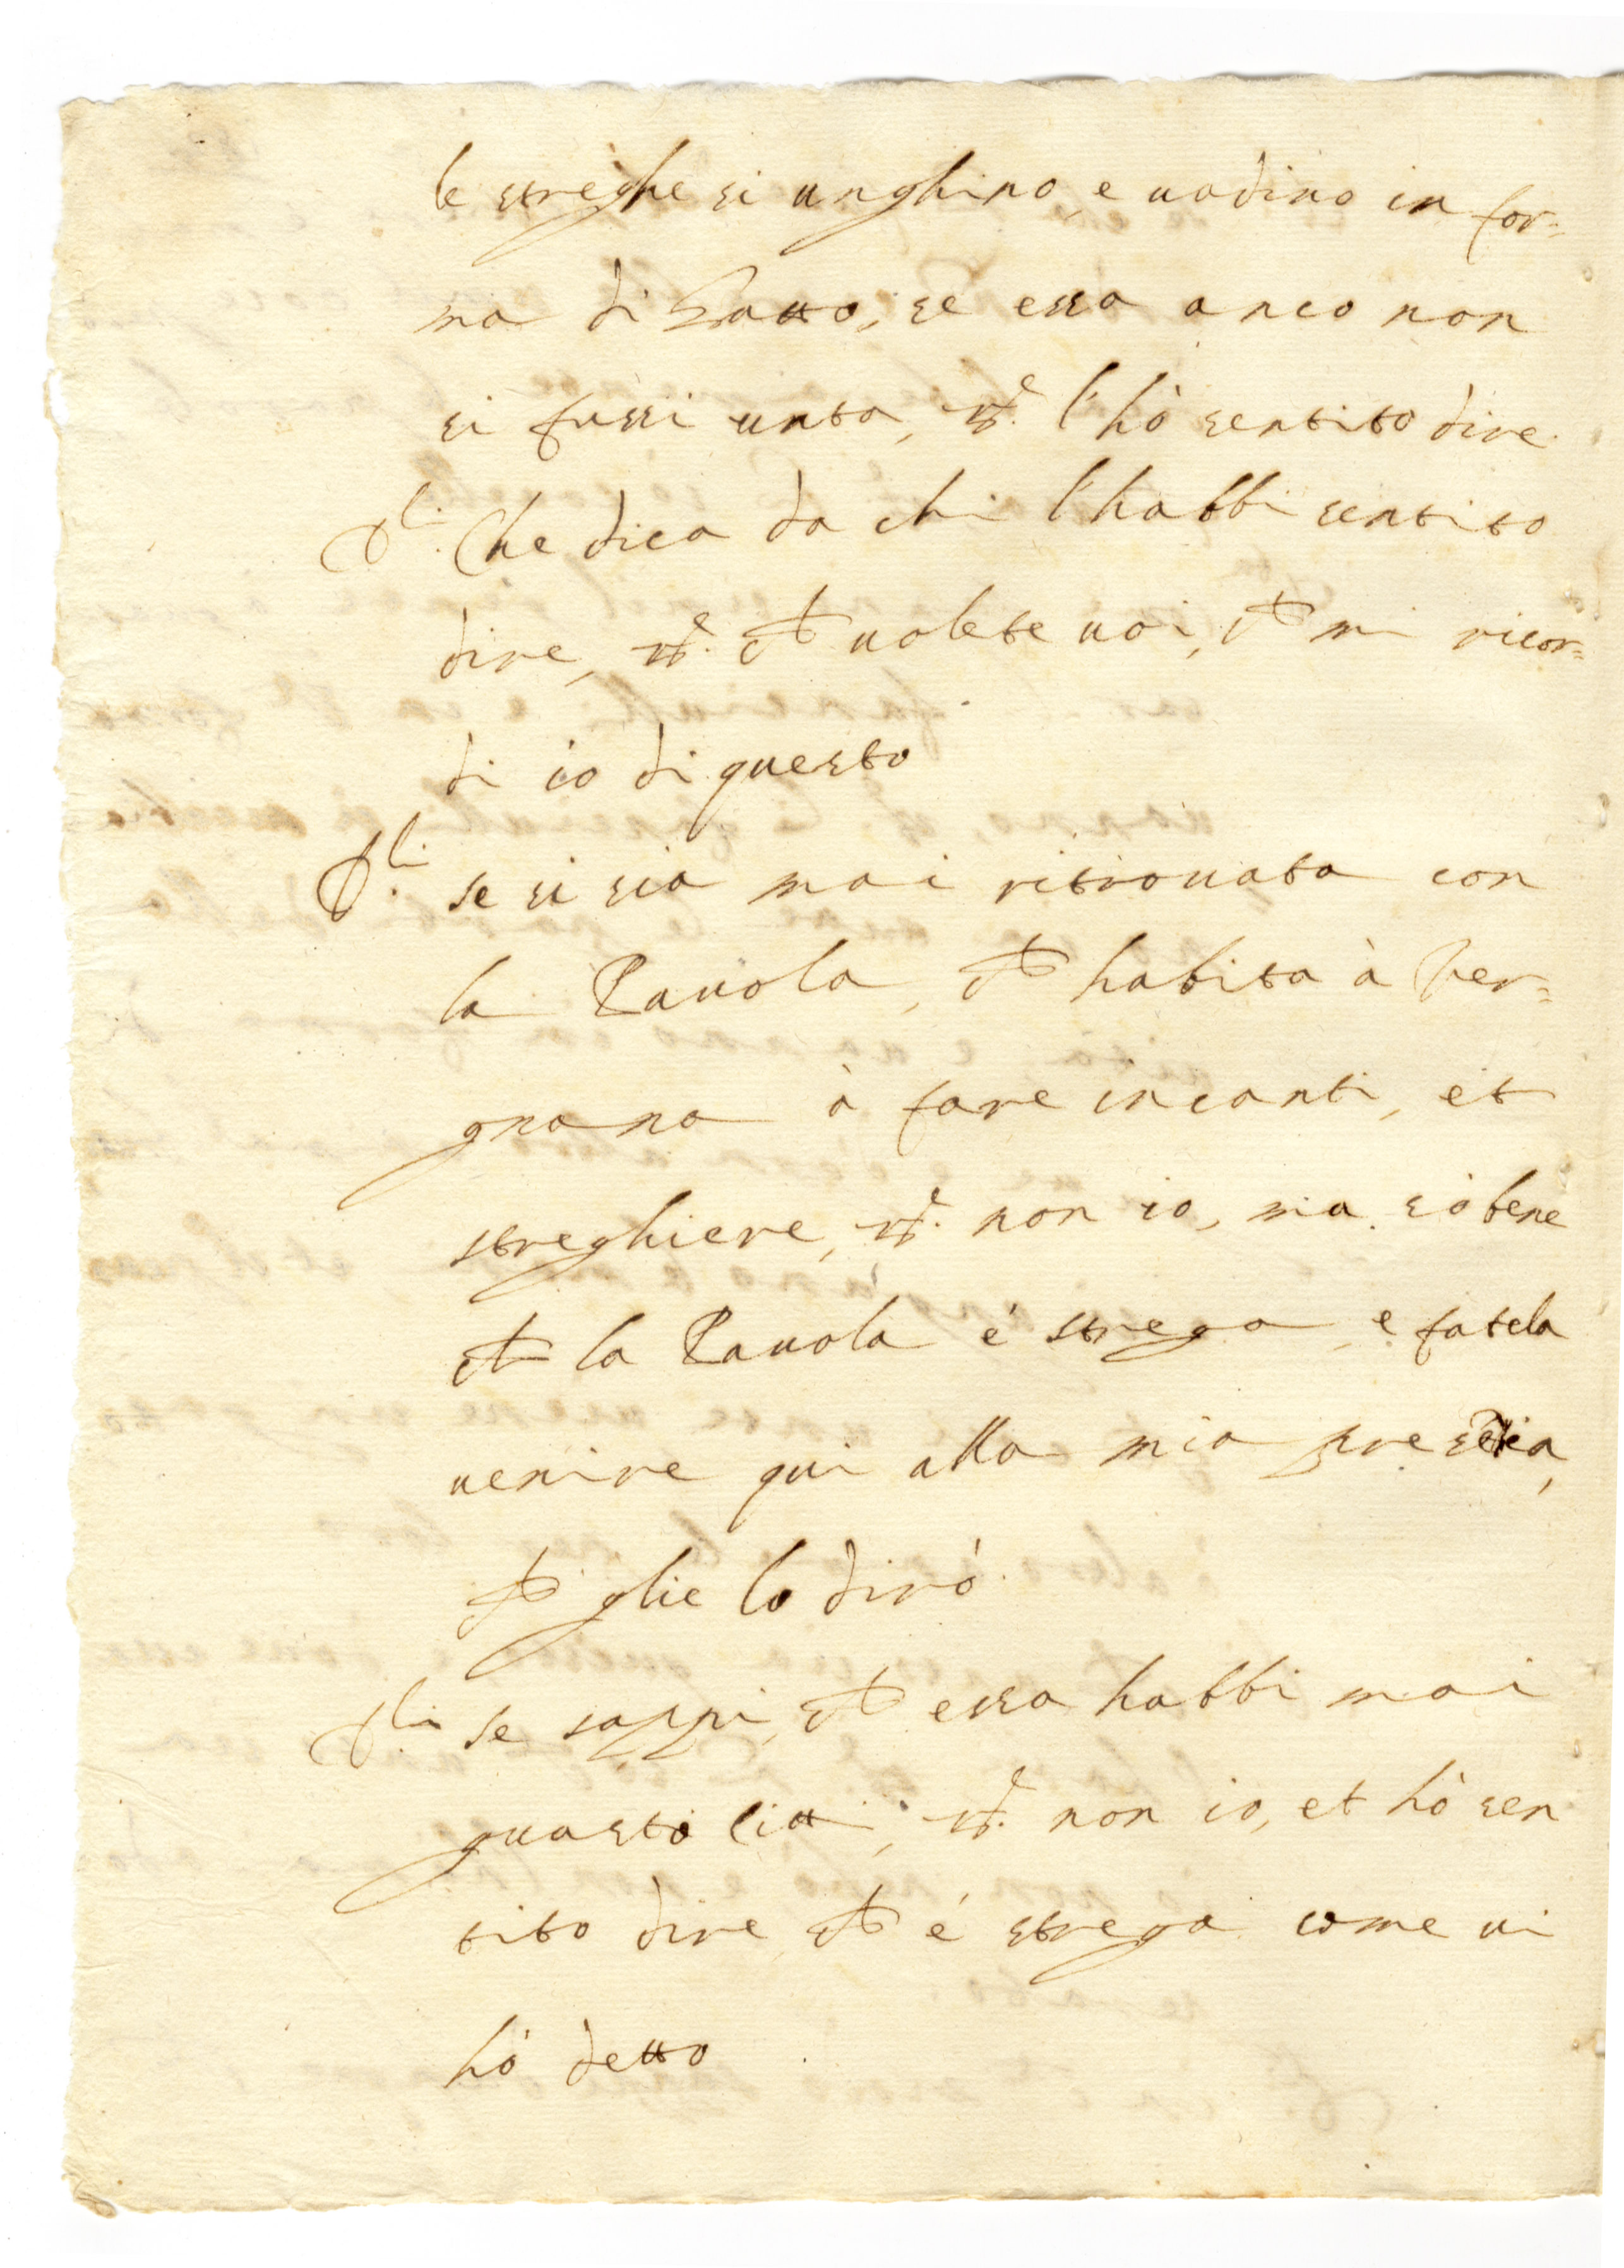 le streghe si unghino, e uadino in for=
ma di Gatto, se essa anco non
si fussi unta, Rᵉ. l'hò sentito dire
Dˡⁱ. Che dica da chi l'habbi sentito
dire, Rᵉ. Ch uolete uoi, Ch mi ricor=
di io di questo
Dˡⁱ. se si sia mai ritrouata con
la Pauola, Ch habita à Ver=
gnana à fare incanti, et
streghiere, Rᵉ. non io, ma sò bene
Ch la Pauola é strega, e fatela
uenire qui alla mia
Ch glie lo dirò.
Dˡⁱ. se sappi, Ch essa habbi mai
guasto citti, Rᵉ. non io, et hò sen
tito dire Ch é strega come ui
hò detto